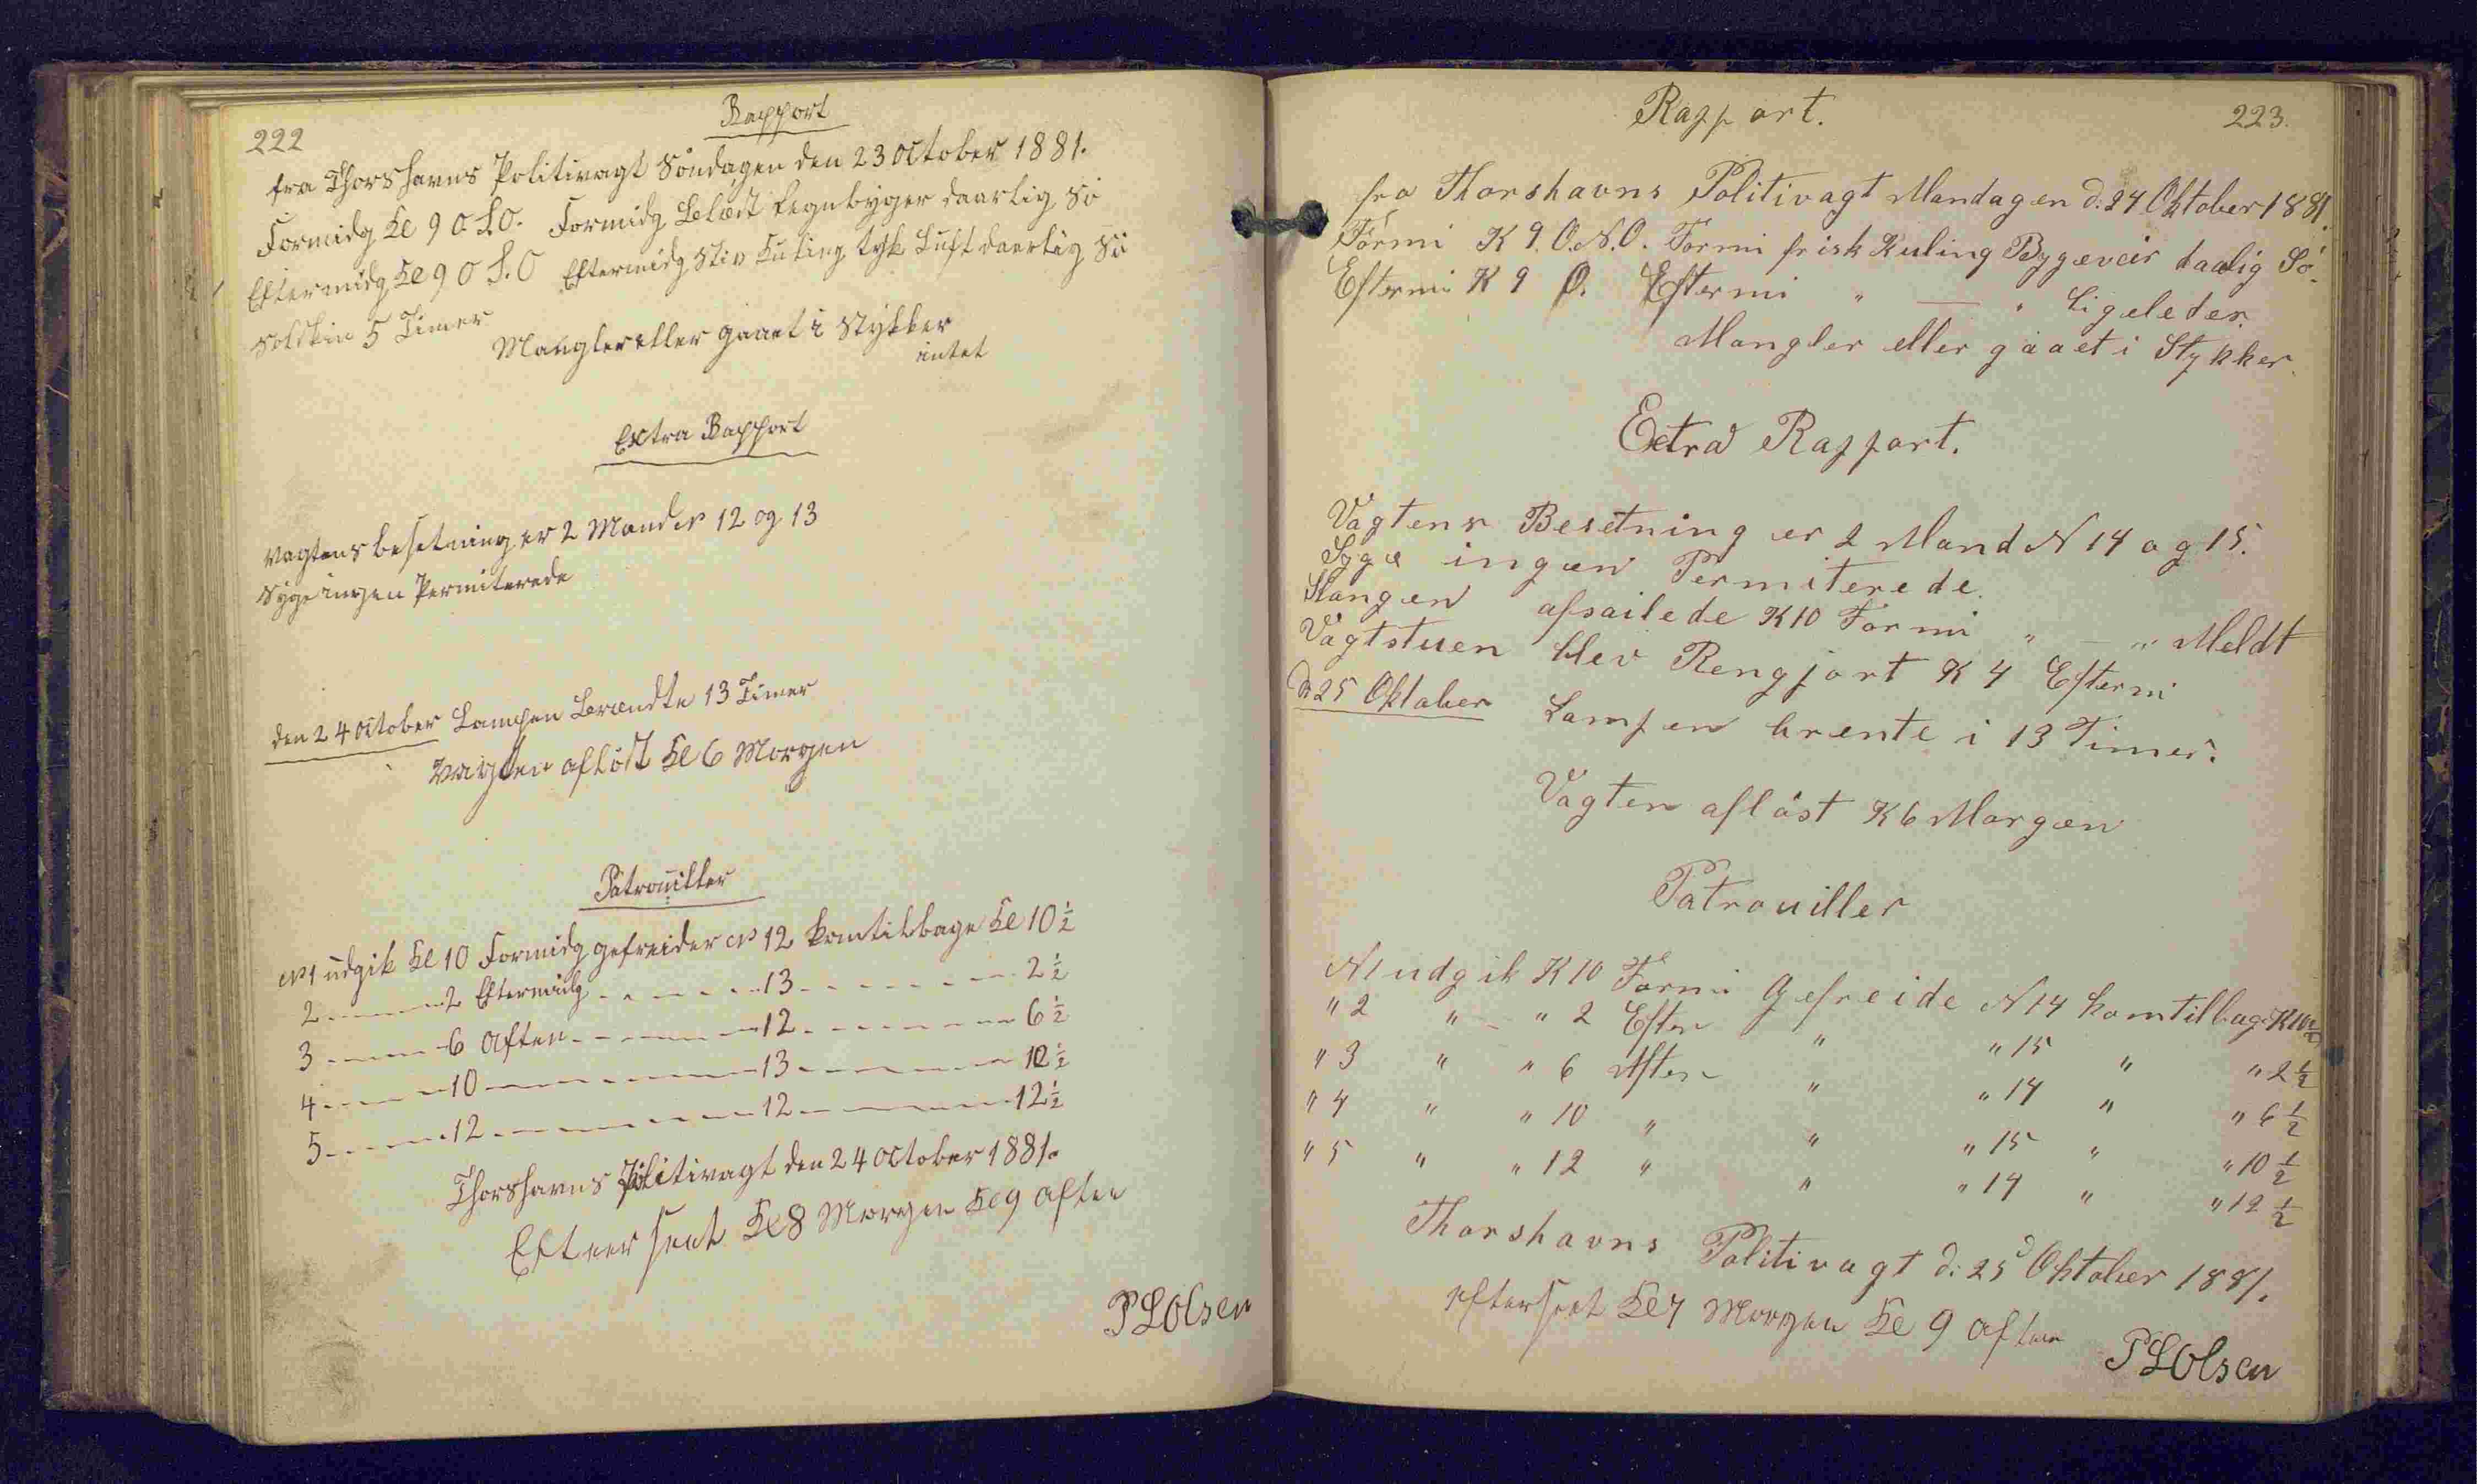 222
Rapport
fra Thorshavns Politivagt Söndagen den 23 October 1881.
Formidg Kl 9 O.S.O. Formidg Blæst Regnbyger daarlig Sö
Eftermidg Kl 9 O S.O Eftermidg Stiv Kuling tyk Luft daarlig Sö
Solskin 5 Timer
Mangler eller gaaet i Stykker
intet
Extra Rapport
Vagtens besetning er 2 Mand No 12 og 13
Syge ingen Permiterede
den 24 October Lampen Brændte 13 Timer
Vagten aflöst Kl 6 Morgen
Patrouiller
No 1 udgik Kl 10 Formidg gefreider No 12 kom tilbage Kl 10 ½
2 - - - - 2 Eftermidg - - - - - 13 - - - - - - 2 ½
3 - - - - 6 Aften - - - - - 12 - - - - - - 6 ½
4 - - - - 10 - - - - - - - 13 - - - - - - 10 ½
5 - - - - 12 - - - - - - - 12 - - - - - - 12 ½
Thorshavns Politivagt den 24 October 1881.
Efterseet Kl 8 Morgen Kl 9 Aften
P L Olsen
223.
Rapport.
fra Thorshavns Politivagt Mandagen d: 24 Oktober 1881.
Formi K 9. O.N.O. Formi frisk Kuling Bygeveir daalig Sö.
Eftermi K 9 O. Eftermi " — " Ligeledes.
Mangler eller gaaet i Stykker.
Extra Rapport.
Vagtens Besetning er 2 Mand N 14 og 15.
Syge ingen Permiterede.
Slangen afsailede K 10 Formi " — " Meldt
Vagtstuen blev Rengjort K 4 Eftermi
d 25 Oktober Lampen brente i 13 Timer.
Vagten aflöst K 6 Morgen
Patrouiller
N 1 udgik K 10 Formi Gefreide N 14 kom tilbage K 10 ½
" 2 " " 2 Efter " " 15 " " 2 ½
" 3 " " 6 Aften " " 14 " " 6 ½
" 4 " " 10 " " " 15 " " 10 ½
" 5 " " 12 " " " 14 " " 12 ½
Thorshavns Politivagt d: 25 Oktober 1881.
efterseet Kl 7 Morgen Kl 9 Aften
P L Olsen